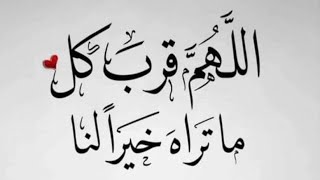 اللَّهُمَّ قربَ كل
ما تراهَ خيراً لنا